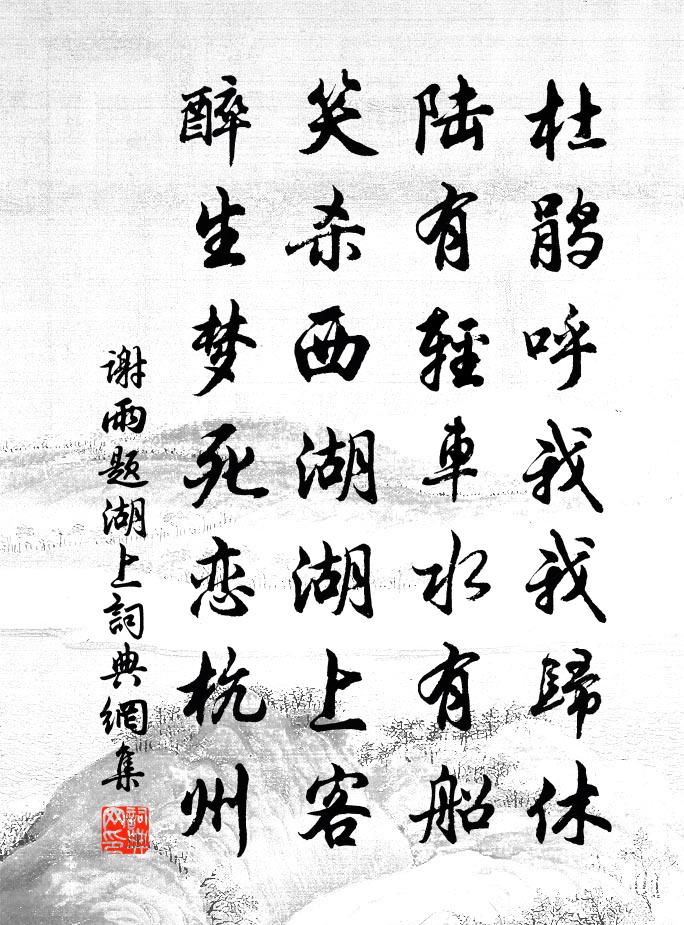 杜鹃呼我我歸休
陆有輕車水有船
笑杀西湖湖上客
醉生梦死恋杭州
谢雨题湖上詞典網集